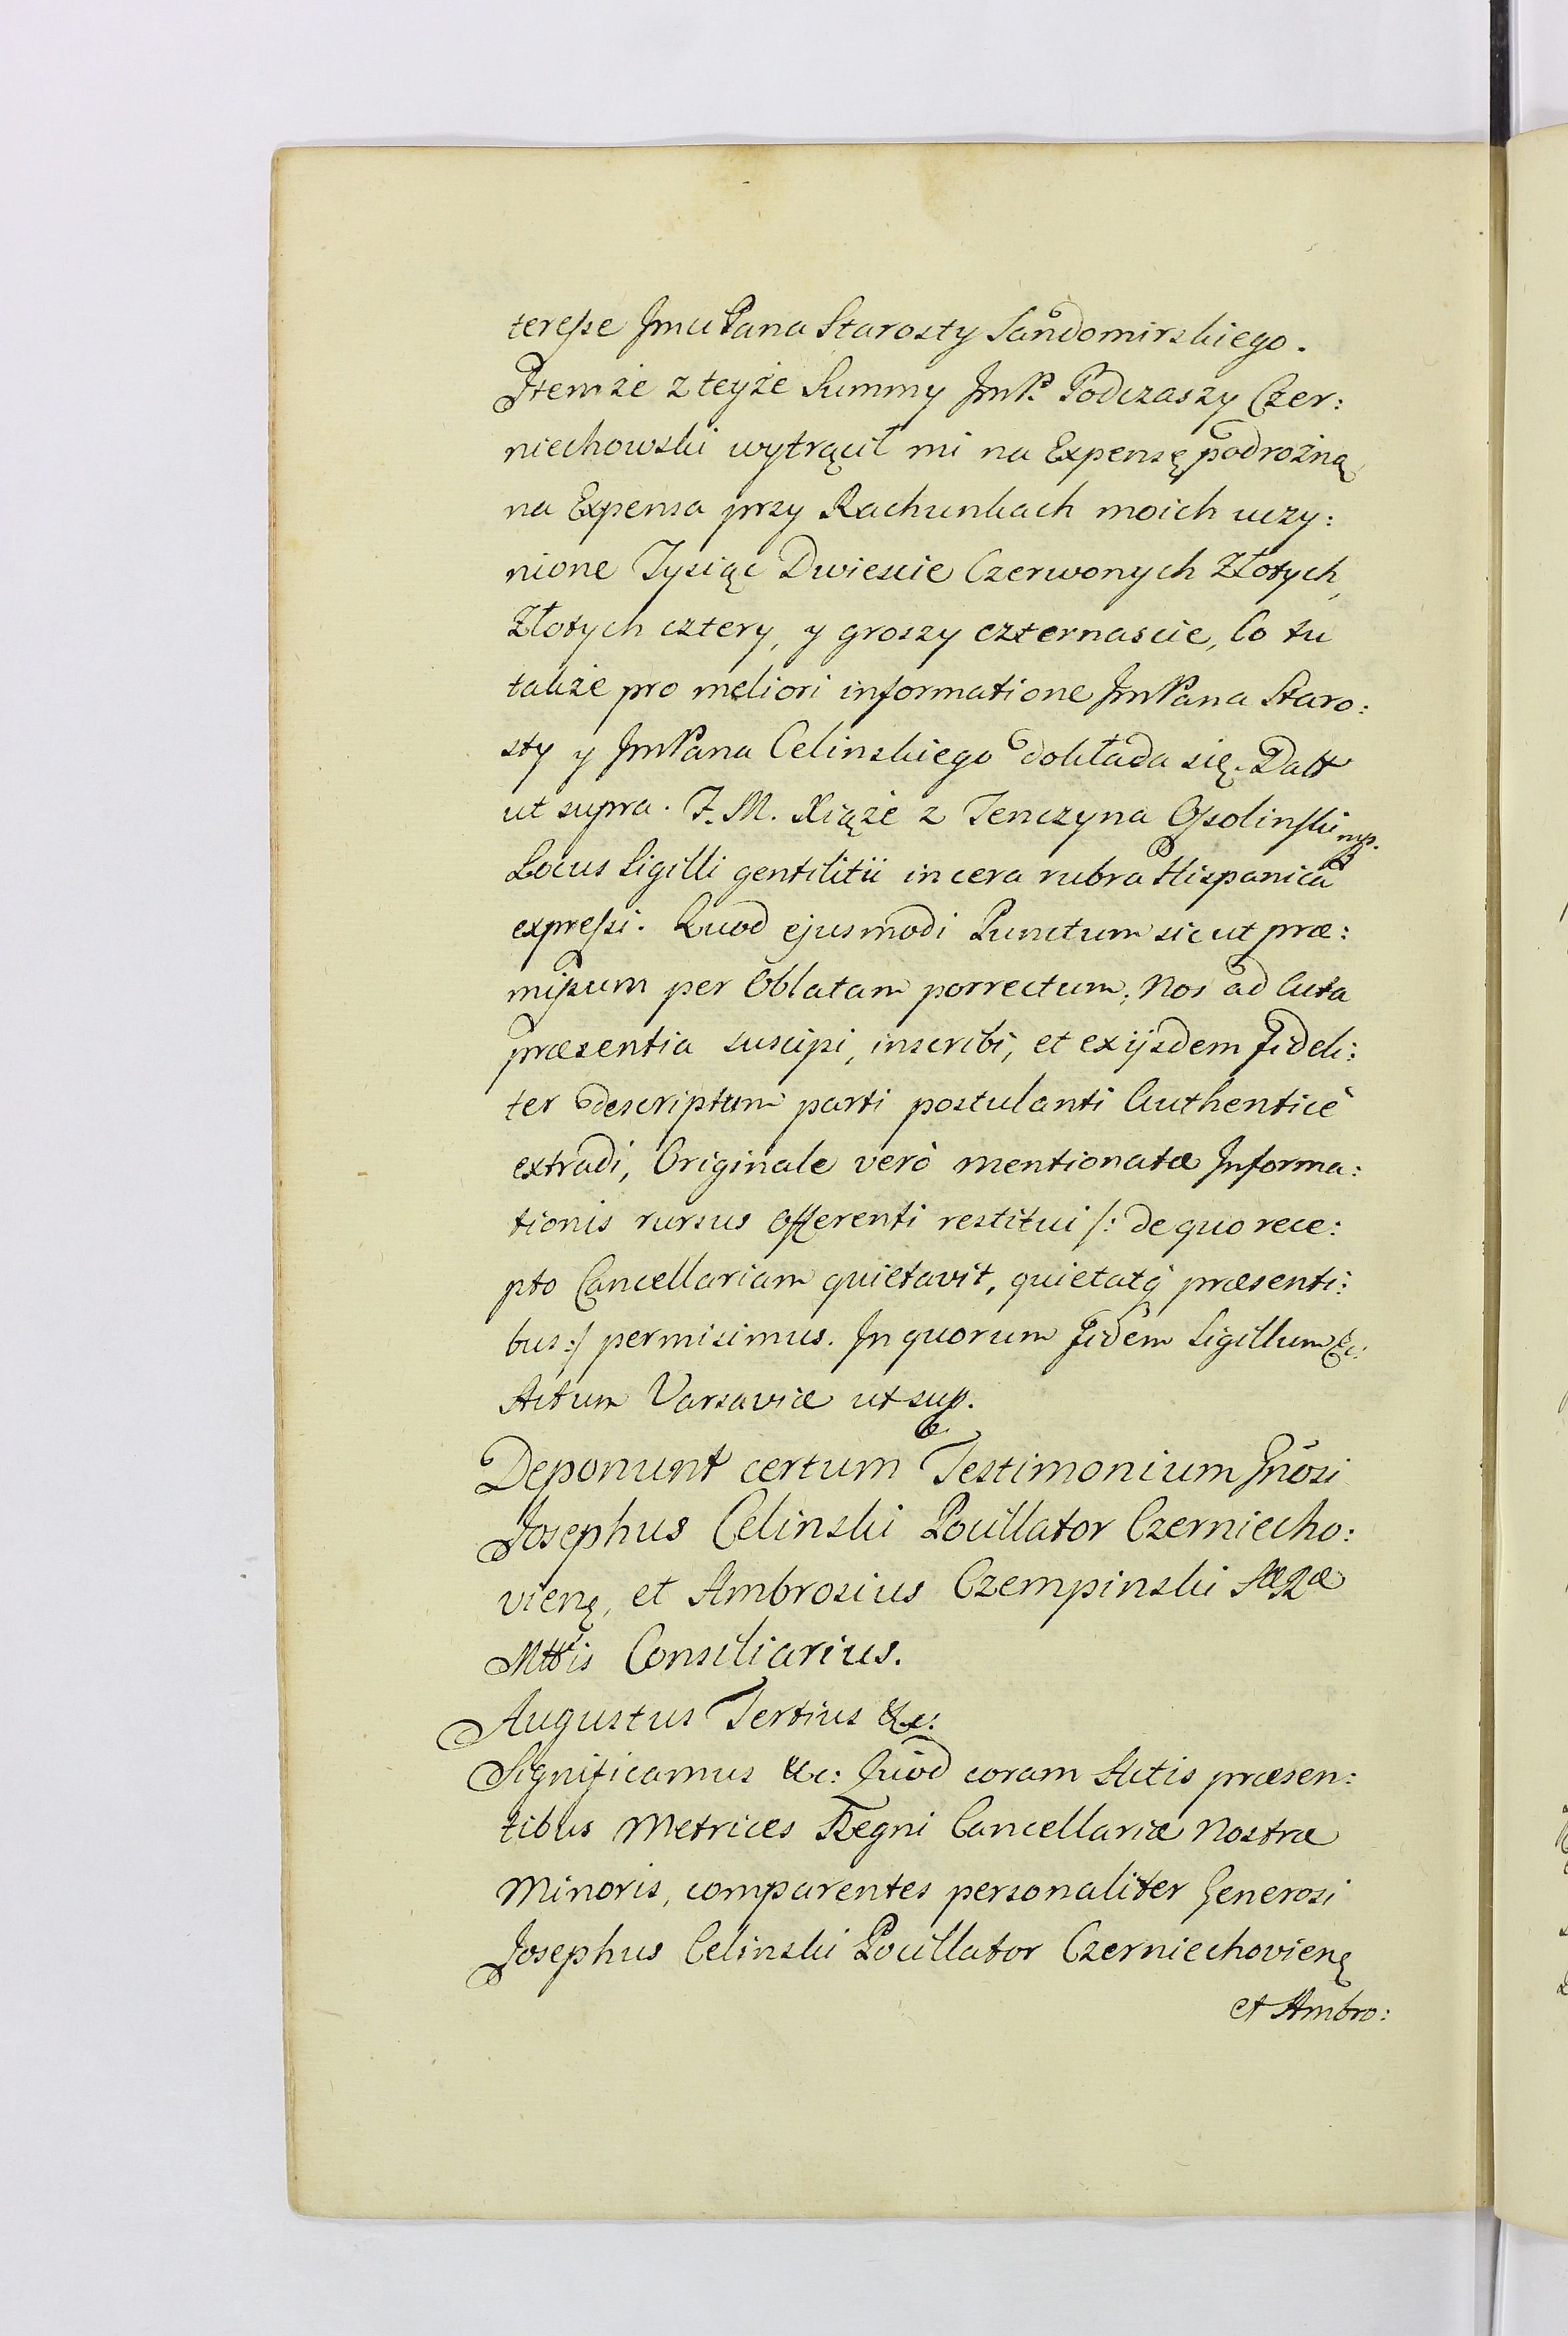 teresse Jmci Pana Starosty Sandomirskiego.
Item że z teyże Summy JmP. Podczaszy Czer:
niechowski wytrącił mi na Expensę podrożną
na Expensa przy Rachunkach moich uczy:
nione Tysiąc Dwiescie Czerwonych Złotych,
Złotych cztery, y groszy czternascie, Co tu
także pro meliori informatione JmPana Staro:
sty y JmPana Celinskiego dokłada się. Datt
ut supra. F. M. Xiąże z Tenczyna Ossolinski mp.
Locus Sigilli gentilitii in cera rubra Hispanica
expressi. Quod ejusmodi Punctum sicut præ:
missum per Oblatam porrectum, Nos ad Acta
præsentia suscipi, inscribi, et ex ijsdem fideli:
ter descriptum parti postulanti Authenticè
extradi, Originale verò mentionatæ Informa:
tionis rursus Offerenti restitui /: de quo rece:
pto Cancellariam quietavit, quietatq̃ præsenti:
bus :/ permisimus. In quorum fidem Sigillum &c:
Actum Varsaviæ ut sup.
Deponunt certum Testimonium Gnosi
Josephus Celinski Pocillator Czerniecho:
vienę, et Ambrosius Czempinski SæRæ
Mttis Consiliarius.
Augustus Tertius &c:
Significamus &c: Quod coram Actis præsen:
tibus Metrices Regni Cancellariæ Nostræ
Minoris, comparentes personaliter Generosi
Josephus Celinski Pocillator Czerniechovienę
et Ambro: